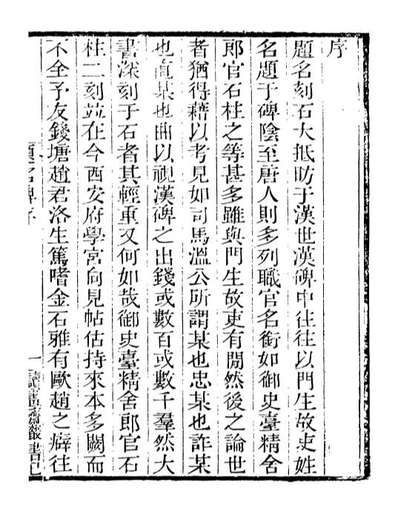 序
題名刻石大抵昉于漢世漢碑中往往以門生故吏姓
名題于碑陰至唐人則多列職官名銜如御史臺精舍
郎官石柱之等甚多雖與門生故吏有閒然後之論世
者猶得藉以考見如司馬溫公所謂某也忠某也詐某
也直某也曲以視漢碑之出錢或數百或數千羣然大
書深刻于石者其輕重又何如哉御史臺精舍郎官石
柱二刻並在今西安府學宮向見帖估持來本多闕而
不全予友錢塘趙君洛生篤嗜金石雅有歐趙之癖往
一 讀畫齋叢書己